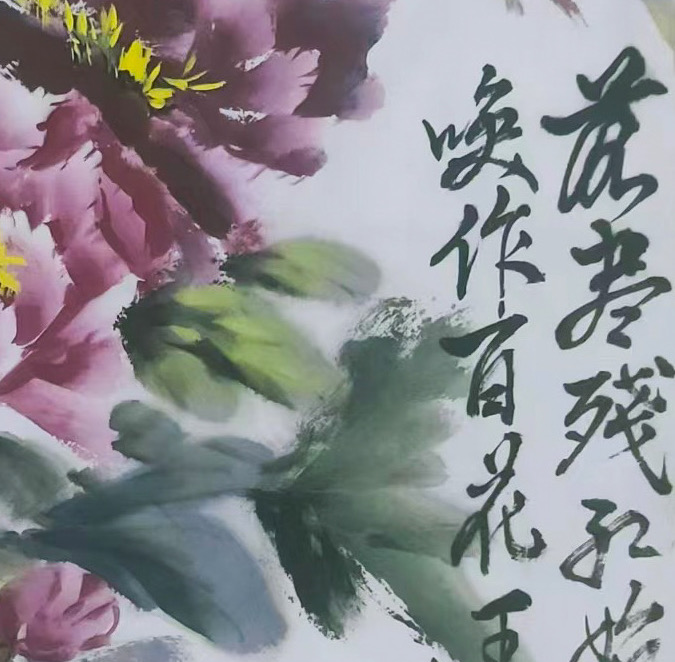 落尽残红始
唤作百花王